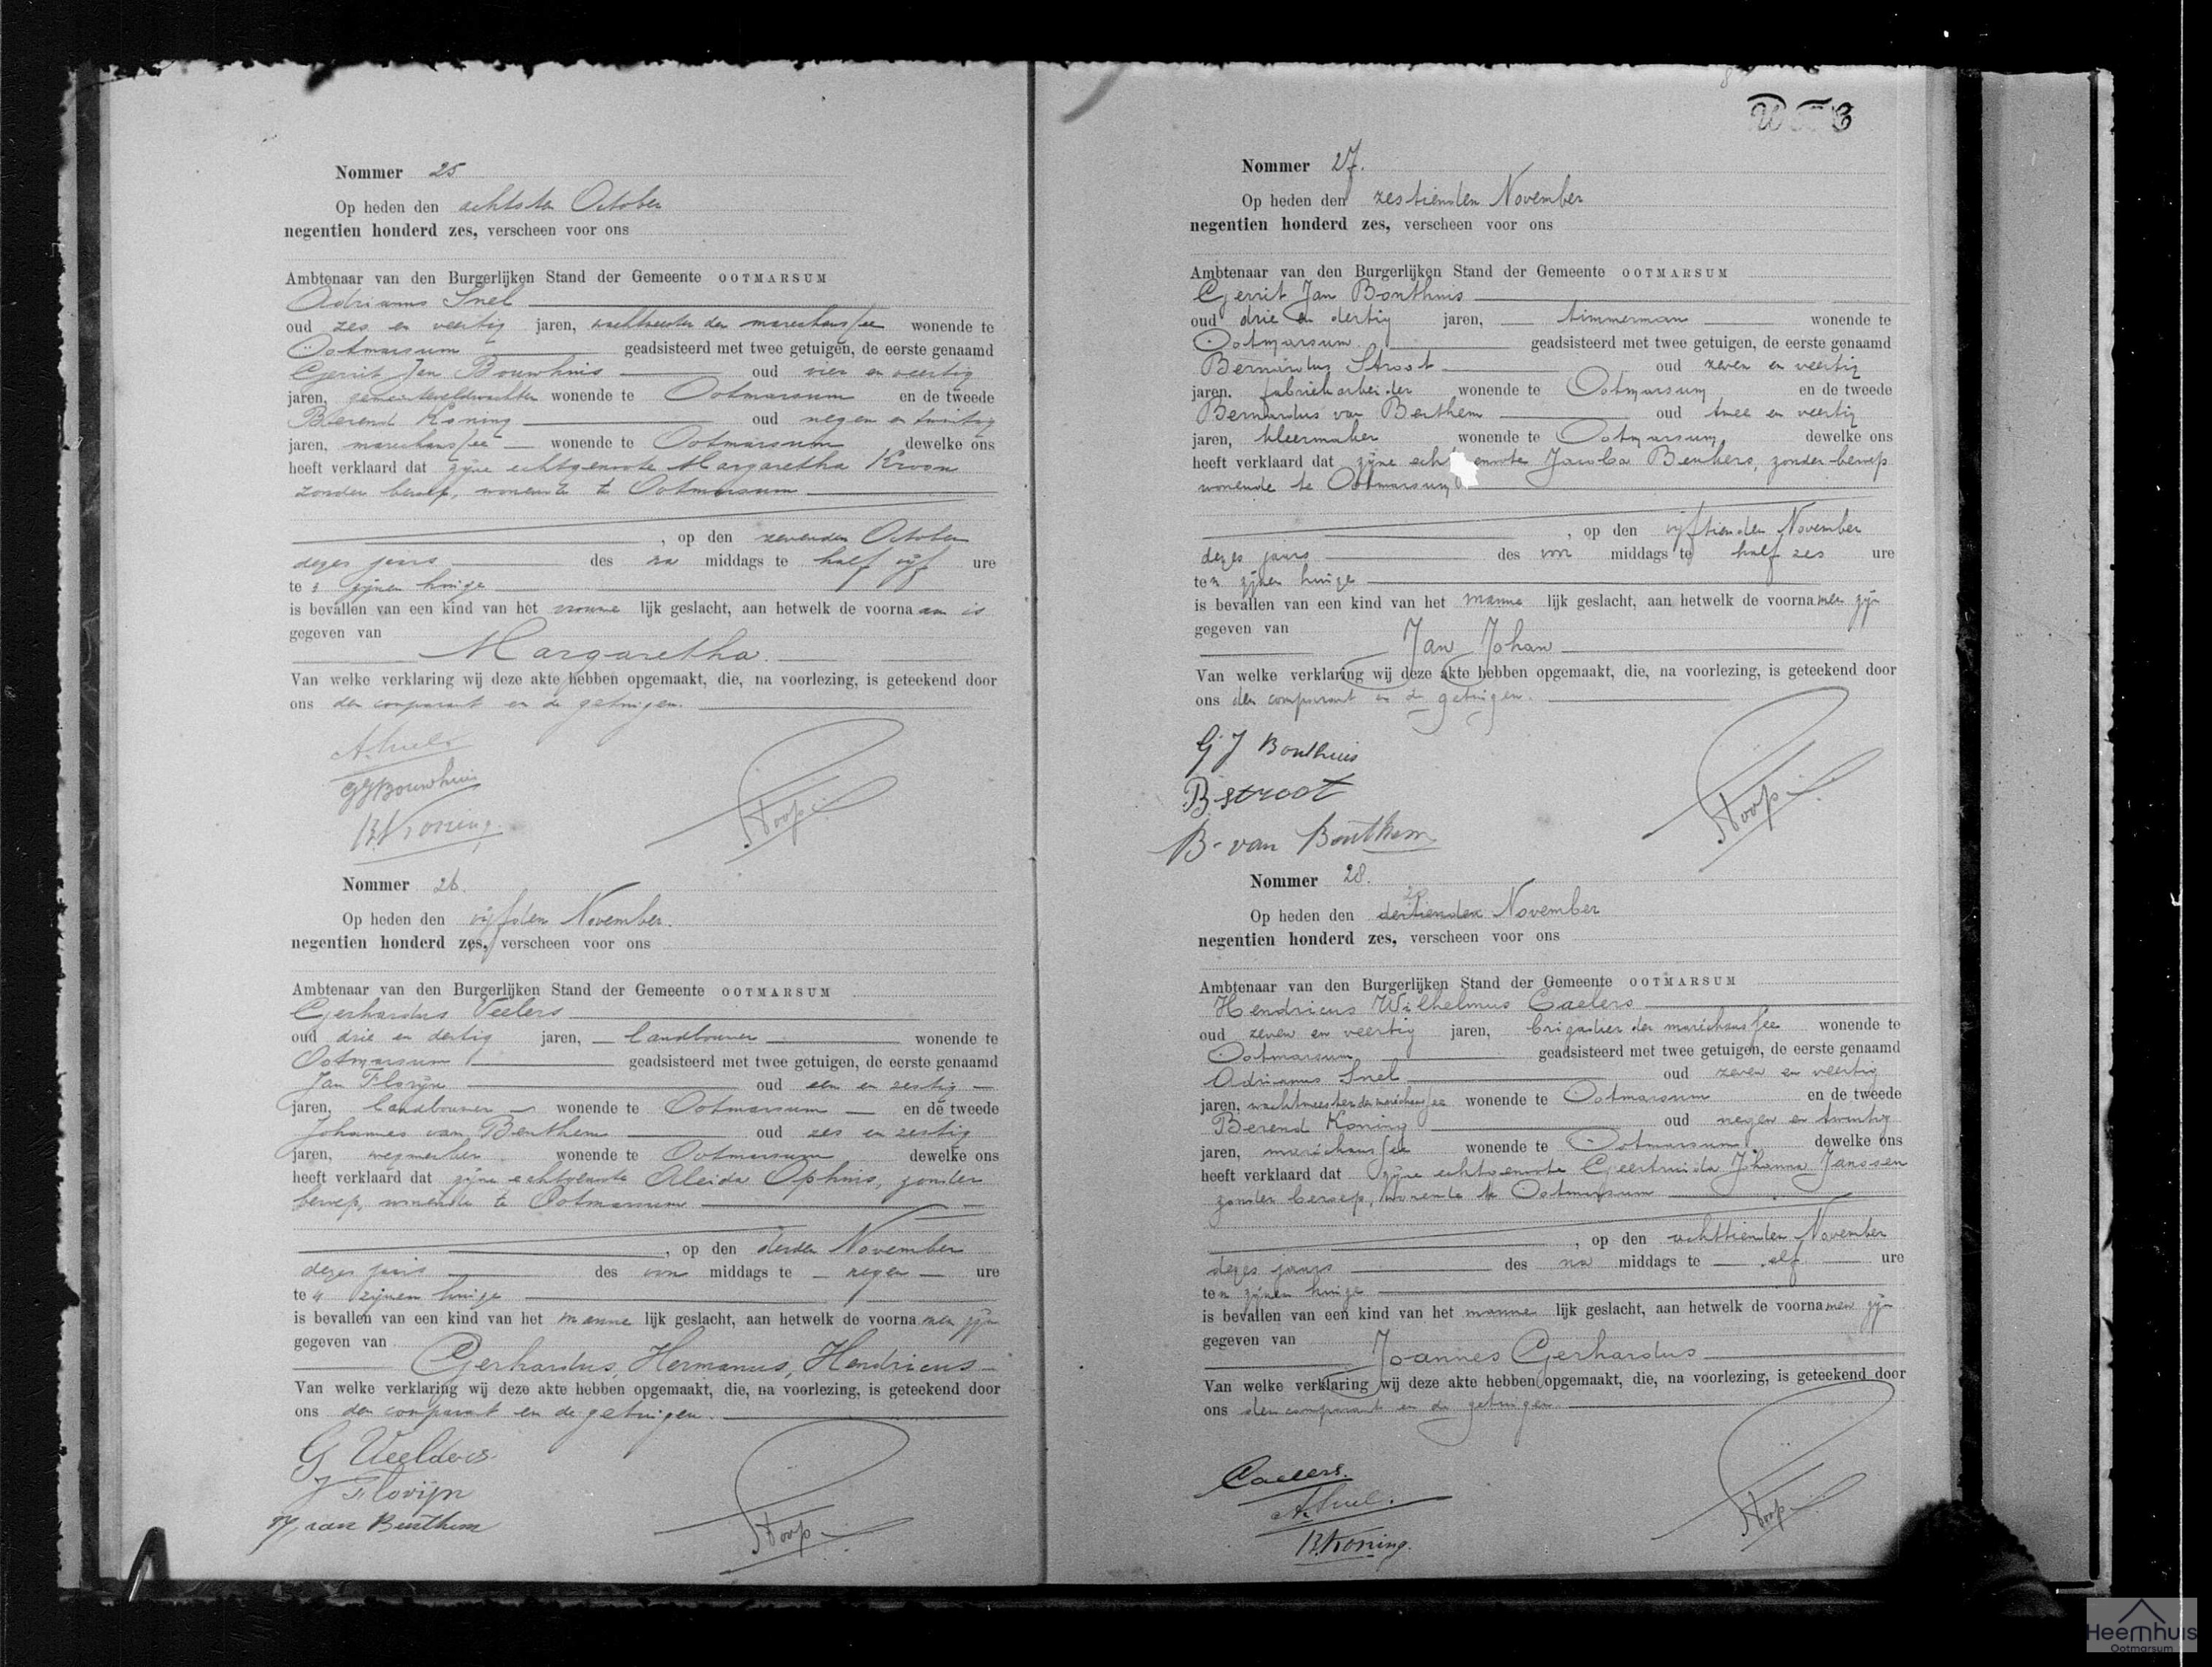 Nommer 25
Op heden den achtsten October
negentien honderd zes, verscheen voor ons
Ambtenaar van den Burgerlijken Stand der Gemeente OOTMARSUM
Adrianus Snel
oud zes en veertig jaren, wachtmeester der marechaussee wonende te
Ootmarsum geadsisteerd met twee getuigen, de eerste genaamd
Gerrit Jan Bouwhuis oud vier en veertig
jaren, gemeenteveldwachter wonende te Ootmarsum en de tweede
Berend Koning oud negen en twintig
jaren, marechaussee wonende te Ootmarsum dewelke ons
heeft verklaard dat zijne echtgenoote Margaretha Kroon
zonder beroep, wonende te Ootmarsum
, op den zevenden October
dezes jaars des na middags te half vijf ure
te zijnen huize
is bevallen van een kind van het vrouwe lijk geslacht, aan hetwelk de voornaam is
gegeven van
Margaretha.
Van welke verklaring wij deze akte hebben opgemaakt, die, na voorlezing, is geteekend door
ons den comparant en de getuigen.
A. Snel
GJ Bouwhuis
B. Koning.
Stoop
Nommer 26.
Op heden den vijfden November.
negentien honderd zes, verscheen voor ons
Ambtenaar van den Burgerlijken Stand der Gemeente OOTMARSUM
Gerhardus Veelers
oud drie en dertig jaren, landbouwer wonende te
Ootmarsum geadsisteerd met twee getuigen, de eerste genaamd
Jan Florijn oud een en zestig
jaren, landbouwer wonende te Ootmarsum en de tweede
Johannes van Benthem oud zes en zestig
jaren, wegwerker wonende te Ootmarsum dewelke ons
heeft verklaard dat zijne echtgenoote Aleida Ophuis, zonder
beroep, wonende te Ootmarsum
, op den derden November
dezes jaars des voor middags te negen ure
te zijnen huize
is bevallen van een kind van het manne lijk geslacht, aan hetwelk de voornamen zijn
gegeven van
Gerhardus, Hermanus, Hendricus
Van welke verklaring wij deze akte hebben opgemaakt, die, na voorlezing, is geteekend door
ons den comparant en de getuigen.
G Veelders
J Florijn
van Benthem
Stoop
Nommer 27.
Op heden den zestienden November
negentien honderd zes, verscheen voor ons
Ambtenaar van den Burgerlijken Stand der Gemeente OOTMARSUM
Gerrit Jan Bonthuis
oud drie en dertig jaren, timmerman wonende te
Ootmarsum. geadsisteerd met twee getuigen, de eerste genaamd
Bernardus Stroot oud zeven en veertig
jaren, fabriekarbeider wonende te Ootmarsum en de tweede
Bernardus van Benthem oud twee en veertig
jaren, kleermaker wonende te Ootmarsum dewelke ons
heeft verklaard dat zijne echt enoote Jacoba Beukers, zonder beroep
wonende te Ootmarsum
, op den vijftienden November
dezes jaars des voor middags te half zes ure
ten zijnen huize
is bevallen van een kind van het manne lijk geslacht, aan hetwelk de voornamen zijn
gegeven van
Jan Johan
Van welke verklaring wij deze akte hebben opgemaakt, die, na voorlezing, is geteekend door
ons den comparant en de getuigen.
G J Bonthuis
B. stroot
B- van Benthem
Stoop
Nommer 28.
Op heden den dertienden November
negentien honderd zes, verscheen voor ons
Ambtenaar van den Burgerlijken Stand der Gemeente OOTMARSUM
Hendricus Wilhelmus Caelers
oud zeven en veertig jaren, brigadier der maréchaussee wonende te
Ootmarsum geadsisteerd met twee getuigen, de eerste genaamd
Adrianus Snel oud zeven en veertig
jaren, wachtmeester der maréchaussee wonende te Ootmarsum en de tweede
Berend Koning oud negen en twintig
jaren, maréchaussee wonende te Ootmarsum dewelke ons
heeft verklaard dat zijne echtgenoote Geertruida Johanna Janssen
zonder beroep, wonende te Ootmarsum
, op den achttienden November
dezes jaars des na middags te elf ure
ten zijnen huize
is bevallen van een kind van het manne lijk geslacht, aan hetwelk de voornamen zijn
gegeven van
Joannes Gerhardus
Van welke verklaring wij deze akte hebben opgemaakt, die, na voorlezing, is geteekend door
ons den comparant en de getuigen.
Caelers.
A. Snel.
B. Koning.
Stoop
Heemhuis
Ootmarsum